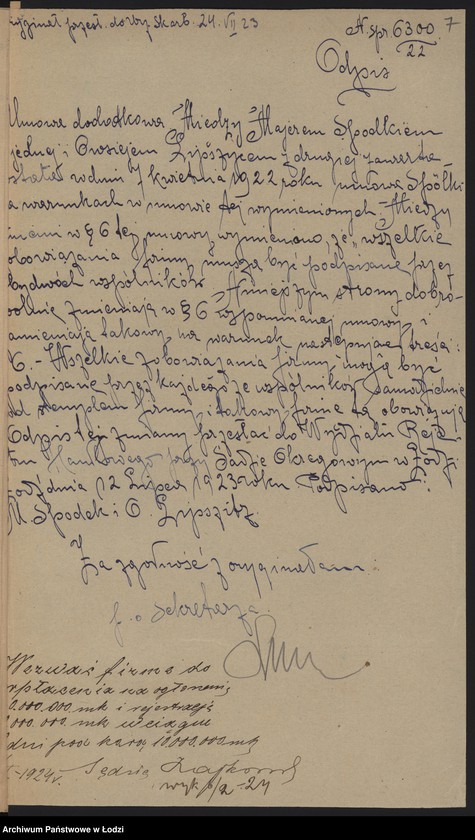 przesł. do Urz. Skarb. 24. VII 23
A. spr. 6300/22
7
Odpis
Umowa dodatkowa. Między Majerem Spodkiem
jednej i Owsiejem Lipszycem z drugiej zawarta
została w dniu 7 kwietnia 1922 roku umowa Spółki
na warunkach w umowie tej wymienionych. Między
innemi w § 6 tej umowy wymieniono, że "wszelkie
zobowiązania firmy muszą być podpisane przez
obydwóch wspólników". Niniejszym strony dobro-
wolnie zmieniają § 6 wspomnianej umowy i
zamieniają takowy na warunek następującej treści:
"6. - Wszelkie zobowiązania firmy mogą być
podpisane przez każdego ze wspólników samodzielnie
pod stemplem firmy i takowe firmę tą obowiązują
Odpis tej zmiany przesłać do Wydziału Reje-
stru Handlowego przy Sądzie Okręgowym w Łodzi.
Łódź dnia 12 Lipca 1923 roku. Podpisano:
M. Spodek i O. Lipszyc.
Za zgodność z oryginałem:
p. o Sekretarza
Wezwać firmę do
wpłacenia na ogłoszenie
0.000.000 mk i rejestrację
000.000 mk w ciągu
dni pod karą 10.000.000 mk
1924 r. Sędzia
wyk. -24
Archiwum Państwowe w Łodzi